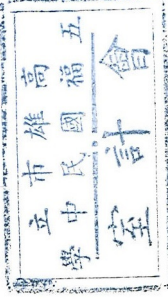 高雄市立
五福國民中學
會計室